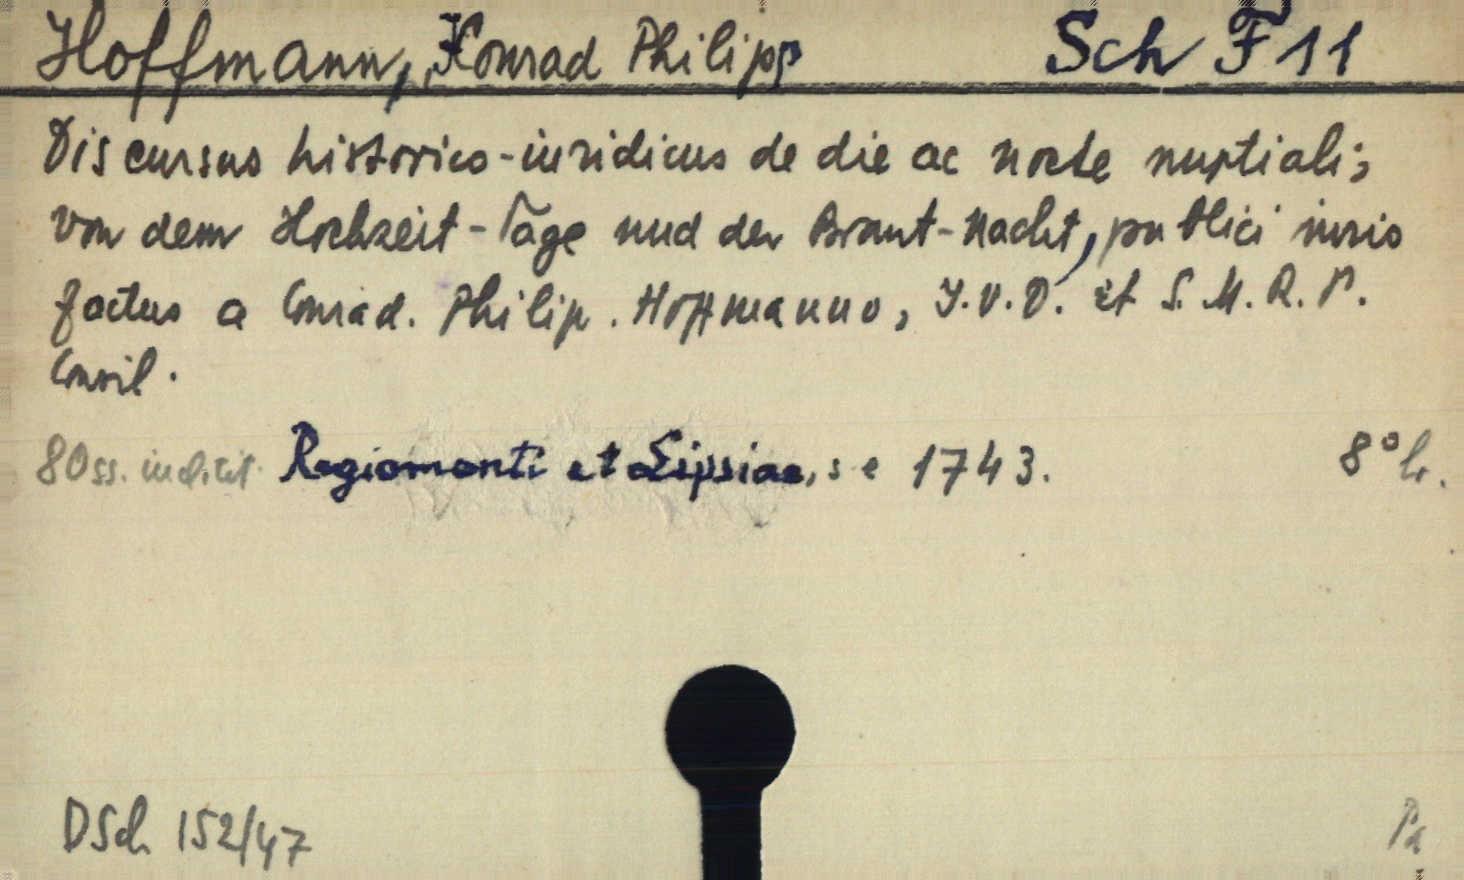 Hoffmann, Konrad Philipp Sch F 11
Discursus historico-iuridicus de die ac nocte nuptiali;
von dem Hochzeit-Tage und der Braut-Nacht, publici iuris
factus a Conrad. Philip. Hoffmanno, J.V.D. et S. M. R. P.
Consil.
80 ss. indicit. Regiomonti et Lipsiae, s e 1743. 8° br.
DSch 152/47 Pa